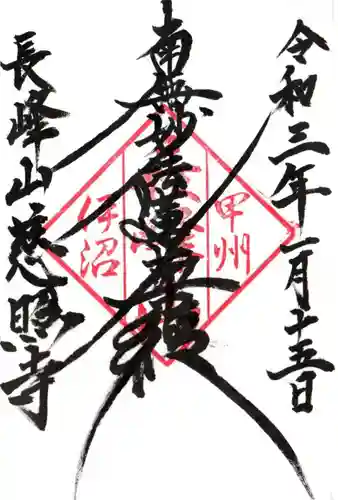 令和三年一月十五日
南無妙法蓮華経
長峰山慈照寺
甲州
伊沼